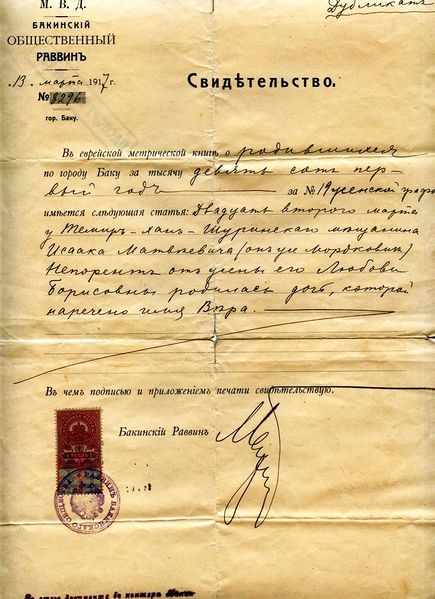 Дубликатъ
М. В. Д.
БАКИНСКІЙ
ОБЩЕСТВЕННЫЙ
РАВВИНЪ
13 марта 1917 г.
№ 8296
гор. Баку.
Свидѣтельство.
Въ еврейской метрической книгѣ о родившихся
по городу Баку за тысячу девять сотъ пер-
вый годъ за № 19 женской графы
имѣется слѣдующая статья: Двадцать второго марта
у Темиръ-Ханъ-Шуринскаго мѣщанина
Исаака Матвѣевича (онъ же Мордковичъ)
Непорентъ отъ жены его Любови
Борисовны родилась дочь, которой
наречено имя Вѣра.
Въ чемъ подписью и приложеніемъ печати свидѣтельствую.
Бакинскій Раввинъ